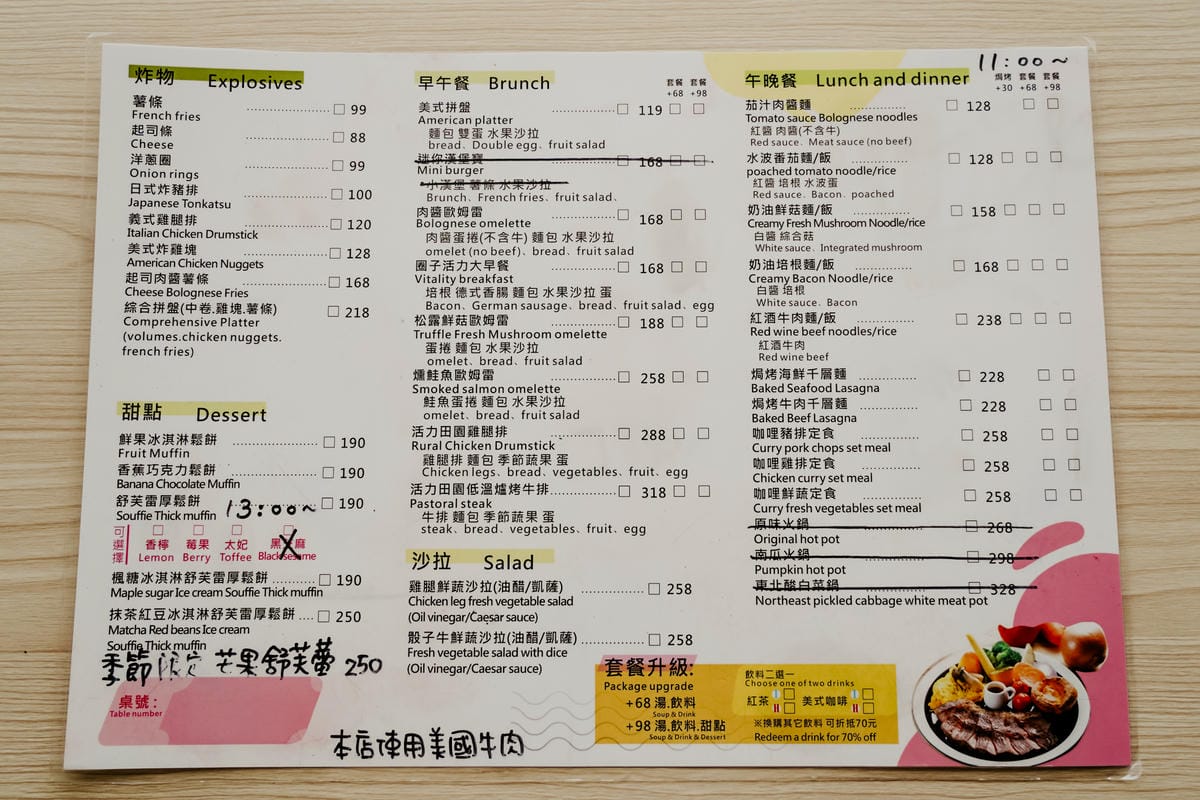 炸物 Explosives
薯條 99
French fries
起司條 88
Cheese
洋蔥圈 99
Onion rings
日式炸豬排 100
Japanese Tonkatsu
義式雞腿排 120
Italian Chicken Drumstick
美式炸雞塊 128
American Chicken Nuggets
起司肉醬薯條 168
Cheese Bolognese Fries
綜合拼盤(中卷.雞塊.薯條) 218
Comprehensive Platter
(volumes.chicken nuggets.
french fries)
甜點 Dessert
鮮果冰淇淋鬆餅 190
Fruit Muffin
香蕉巧克力鬆餅 190
Banana Chocolate Muffin
舒芙雷厚鬆餅 13:00~ 190
Souffie Thick muffin
可選擇
香檸 莓果 太妃 黑 麻
Lemon Berry Toffee Black sesame
楓糖冰淇淋舒芙雷厚鬆餅 190
Maple sugar Ice cream Souffie Thick muffin
抹茶紅豆冰淇淋舒芙雷厚鬆餅 250
Matcha Red beans Ice cream
Souffie Thick muffin
季節限定 芒果舒芙蕾 250
桌號:
Table number
本店使用美國牛肉
早午餐 Brunch
套餐 套餐
+68 +98
美式拼盤 119
American platter
麵包 雙蛋 水果沙拉
bread、Double egg、fruit salad
迷你漢堡寶 168
Mini burger
小漢堡 薯條 水果沙拉
Brunch、French fries、fruit salad、
肉醬歐姆雷 168
Bolognese omelette
肉醬蛋捲(不含牛) 麵包 水果沙拉
omelet (no beef)、bread、fruit salad
圈子活力大早餐 168
Vitality breakfast
培根 德式香腸 麵包 水果沙拉 蛋
Bacon、German sausage、bread、fruit salad、egg
松露鮮菇歐姆雷 188
Truffle Fresh Mushroom omelette
蛋捲 麵包 水果沙拉
omelet、bread、fruit salad
燻鮭魚歐姆雷 258
Smoked salmon omelette
鮭魚蛋捲 麵包 水果沙拉
omelet、bread、fruit salad
活力田園雞腿排 288
Rural Chicken Drumstick
雞腿排 麵包 季節蔬果 蛋
Chicken legs、bread、vegetables、fruit、egg
活力田園低溫爐烤牛排 318
Pastoral steak
牛排 麵包 季節蔬果 蛋
steak、bread、vegetables、fruit、egg
沙拉 Salad
雞腿鮮蔬沙拉(油醋/凱薩) 258
Chicken leg fresh vegetable salad
(Oil vinegar/Caesar sauce)
骰子牛鮮蔬沙拉(油醋/凱薩) 258
Fresh vegetable salad with dice
(Oil vinegar/Caesar sauce)
11:00~
午晚餐 Lunch and dinner
焗烤 套餐 套餐
+30 +68 +98
茄汁肉醬麵 128
Tomato sauce Bolognese noodles
紅醬 肉醬(不含牛)
Red sauce、Meat sauce (no beef)
水波番茄麵/飯 128
poached tomato noodle/rice
紅醬 培根 水波蛋
Red sauce、Bacon、poached
奶油鮮菇麵/飯 158
Creamy Fresh Mushroom Noodle/rice
白醬 綜合菇
White sauce、Integrated mushroom
奶油培根麵/飯 168
Creamy Bacon Noodle/rice
白醬 培根
White sauce、Bacon
紅酒牛肉麵/飯 238
Red wine beef noodles/rice
紅酒牛肉
Red wine beef
焗烤海鮮千層麵 228
Baked Seafood Lasagna
焗烤牛肉千層麵 228
Baked Beef Lasagna
咖哩豬排定食 258
Curry pork chops set meal
咖哩雞排定食 258
Chicken curry set meal
咖哩鮮蔬定食 258
Curry fresh vegetables set meal
原味火鍋 268
Original hot pot
南瓜火鍋 298
Pumpkin hot pot
東北酸白菜鍋 328
Northeast pickled cabbage white meat pot
套餐升級:
Package upgrade
+68 湯.飲料
Soup & Drink
+98 湯.飲料.甜點
Soup & Drink & Dessert
飲料二選一
Choose one of two drinks
紅茶 美式咖啡
※換購其它飲料 可折抵70元
Redeem a drink for 70% off